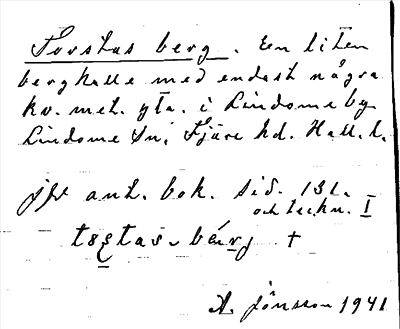 Torstas berg. En liten
berghalle med endast några
kv. met. yta. i Lindome by
Lindome Sn, Fjäre hd. Hall. l.
jfr ant. bok. sid. 131.
och teckn. I
bärj +
A. Jönsson 1941